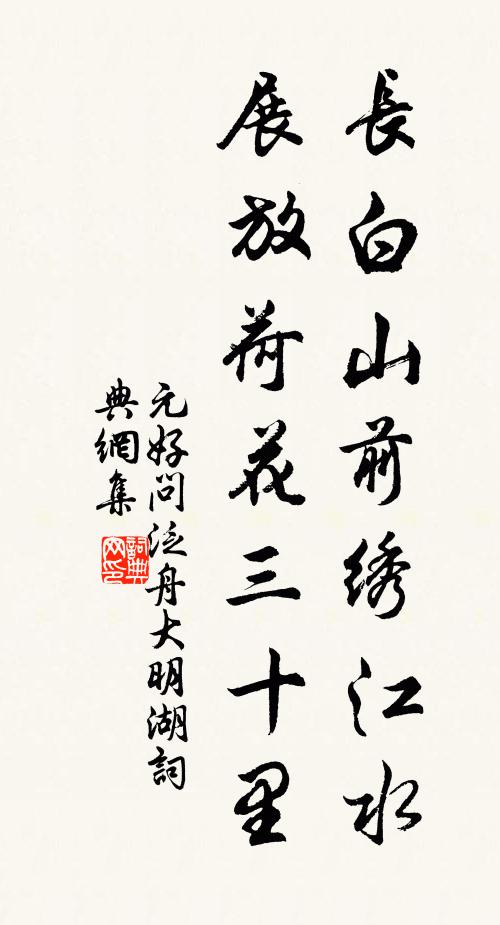 長白山前綉江水
展放荷花三十里
元好問泛舟大明湖詞
典網集
詞典
网印